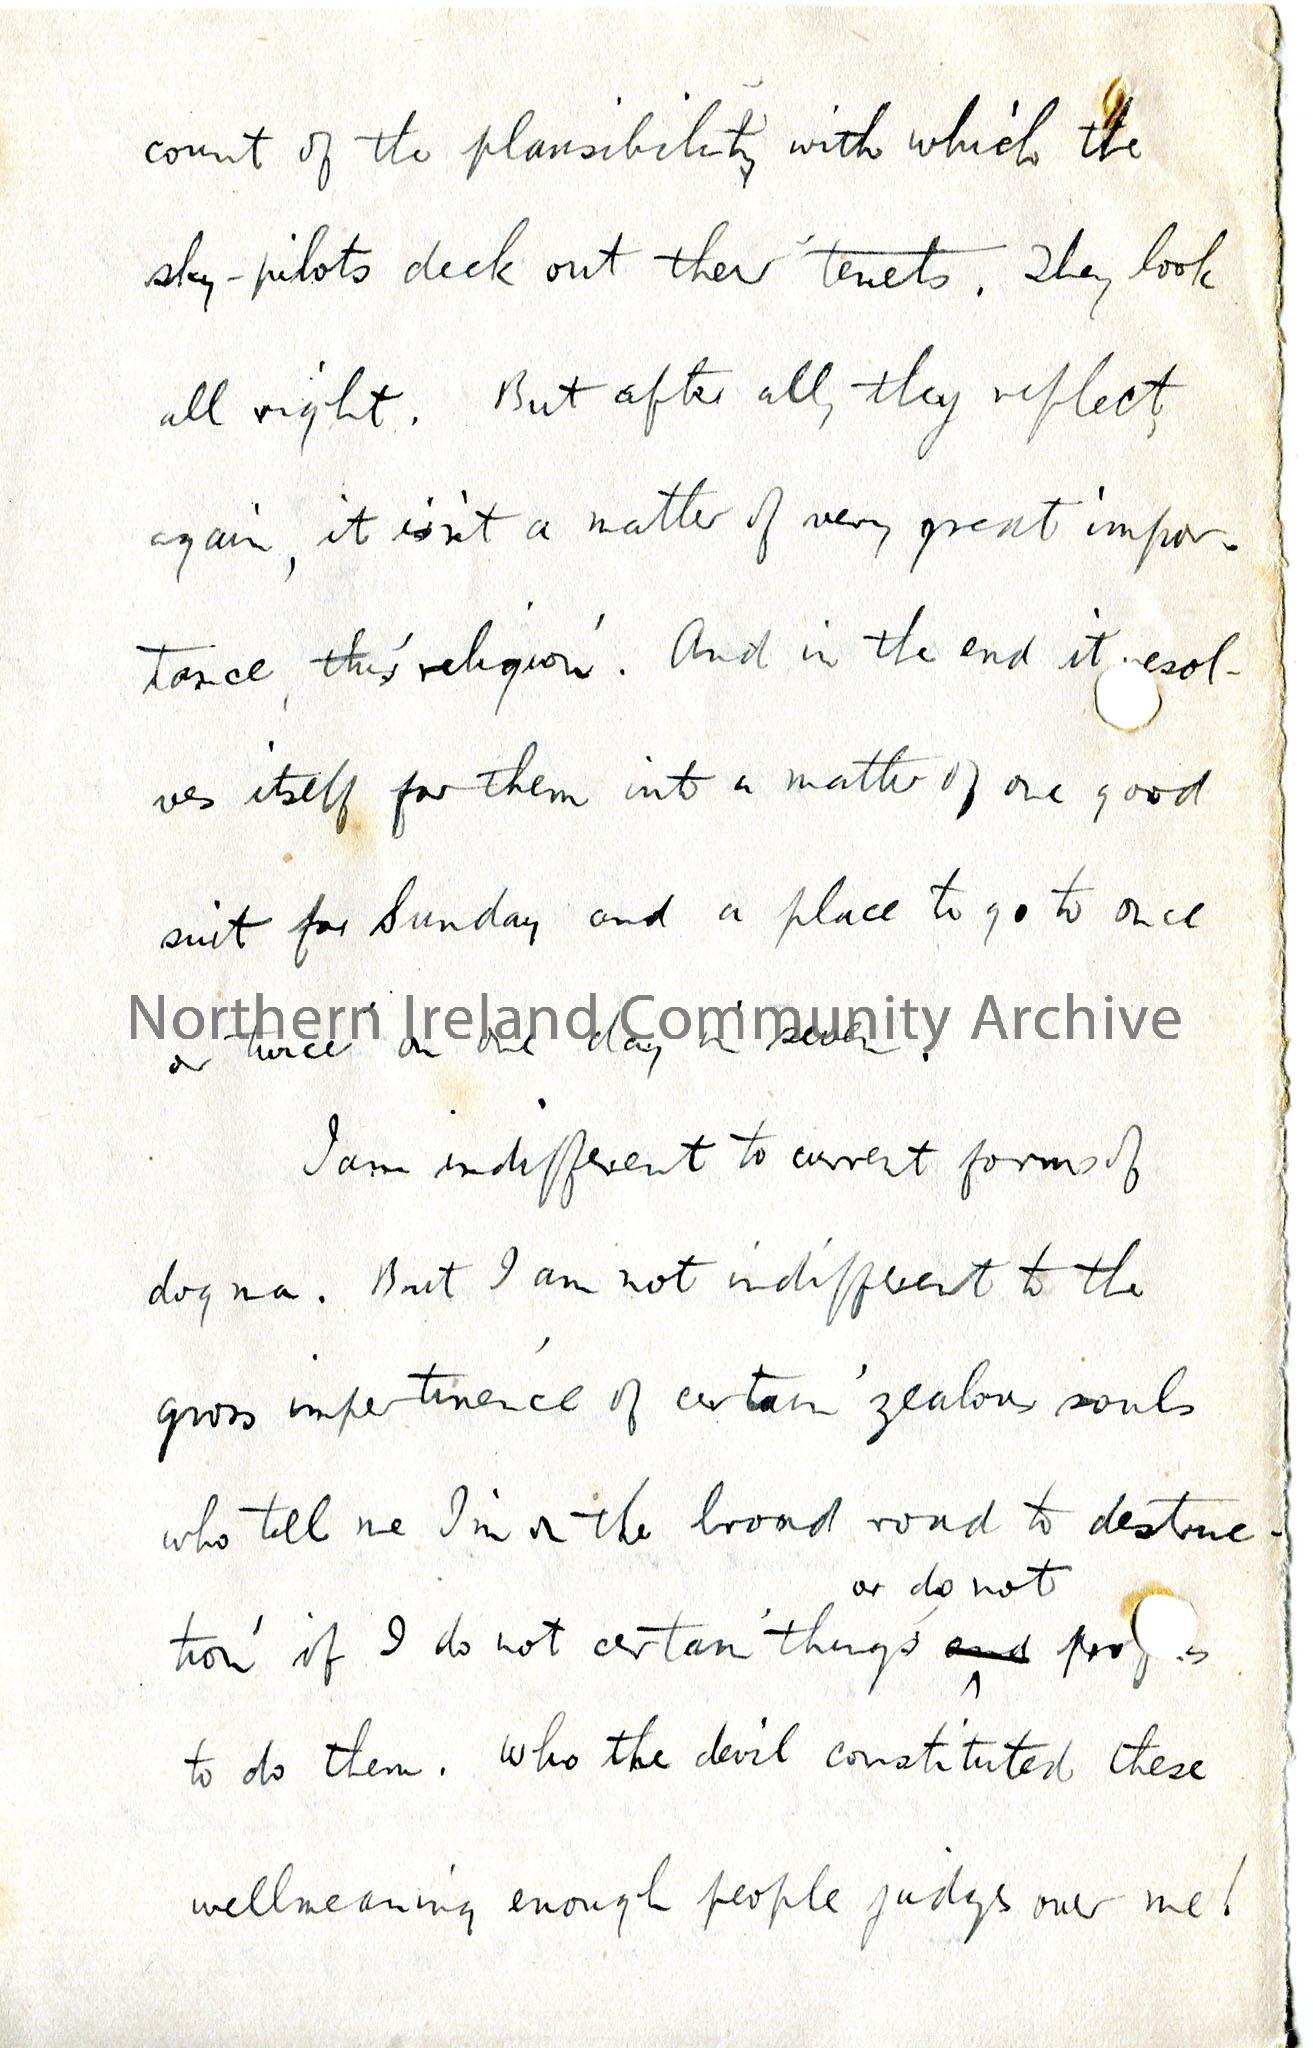 count of the plausibility with which the
sky-pilots deck out their tenets. They look
all right. But after all, they reflect,
again, it isn't a matter of very great impor-
tance, this religion. And in the end it resol-
ves itself for them into a matter of one good
suit for Sunday and a place to go to once
Northern Ireland Community Archive
or twice on one day in seven.
I am indifferent to current forms of
dogma. But I am not indifferent to the
gross impertinence of certain zealous souls
who tell me I'm on the broad road to destruc-
or do not
tion if I do not certain things and profess
to do them. Who the devil constituted these
wellmeaning enough people judges over me!